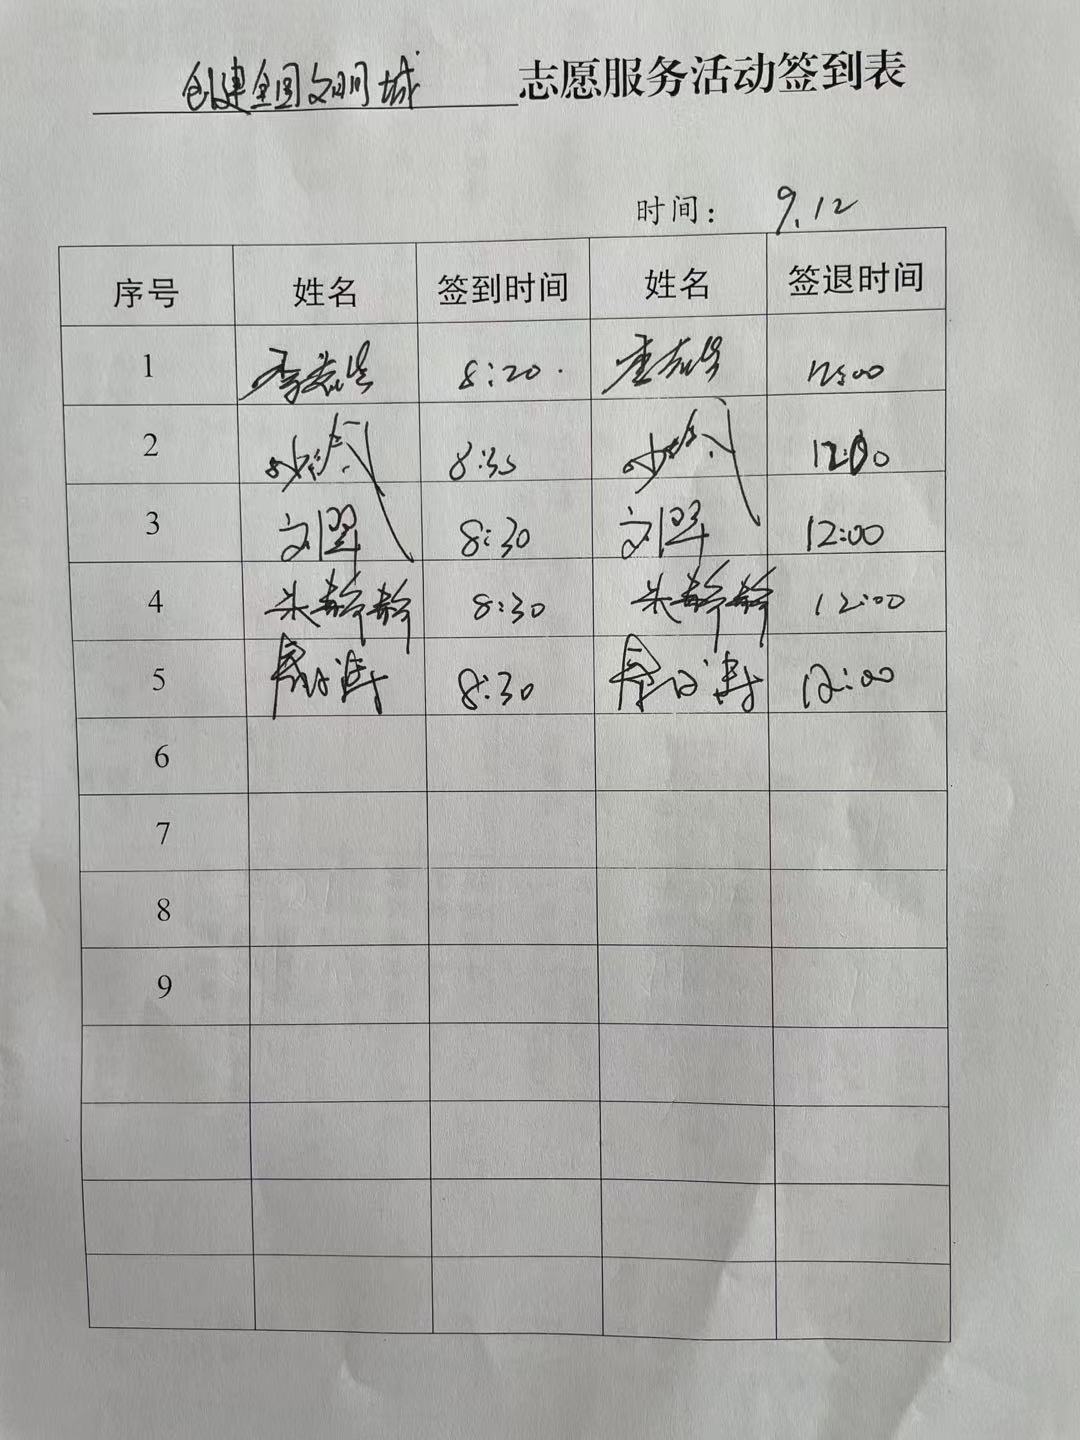 创建全国文明城 志愿服务活动签到表
时间： 9.12
序号 姓名 签到时间 姓名 签退时间
1 8:20 12:00
2 8:30 12:00
3 8:30 12:00
4 朱龄龄 8:30 朱龄龄 12:00
5 8:30 12:00
6
7
8
9